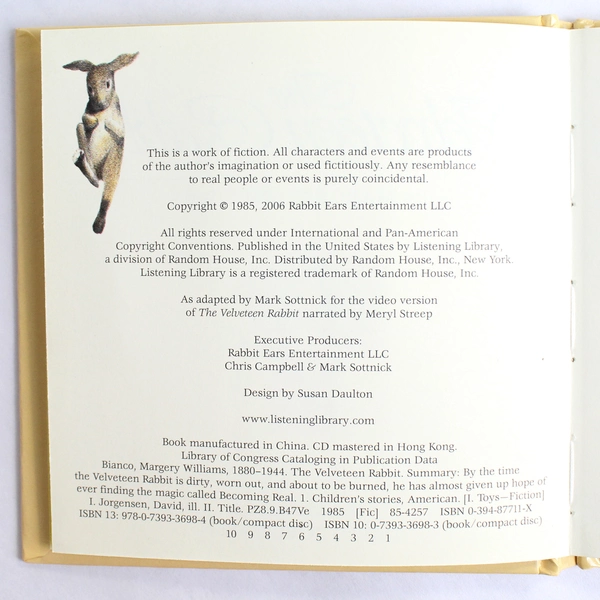 This is a work of fiction. All characters and events are products
of the author's imagination or used fictitiously. Any resemblance
to real people or events is purely coincidental.
Copyright © 1985, 2006 Rabbit Ears Entertainment LLC
All rights reserved under International and Pan-American
Copyright Conventions. Published in the United States by Listening Library,
a division of Random House, Inc. Distributed by Random House, Inc., New York.
Listening Library is a registered trademark of Random House, Inc.
As adapted by Mark Sottnick for the video version
of The Velveteen Rabbit narrated by Meryl Streep
Executive Producers:
Rabbit Ears Entertainment LLC
Chris Campbell & Mark Sottnick
Design by Susan Daulton
www.listeninglibrary.com
Book manufactured in China. CD mastered in Hong Kong.
Library of Congress Cataloging in Publication Data
Bianco, Margery Williams, 1880–1944. The Velveteen Rabbit. Summary: By the time
the Velveteen Rabbit is dirty, worn out, and about to be burned, he has almost given up hope of
ever finding the magic called Becoming Real. 1. Children's stories, American. [I. Toys—Fiction]
I. Jorgensen, David, ill. II. Title. PZ8.9.B47Ve 1985 [Fic] 85-4257 ISBN 0-394-87711-X
ISBN 13: 978-0-7393-3698-4 (book/compact disc) ISBN 10: 0-7393-3698-3 (book/compact disc)
10 9 8 7 6 5 4 3 2 1